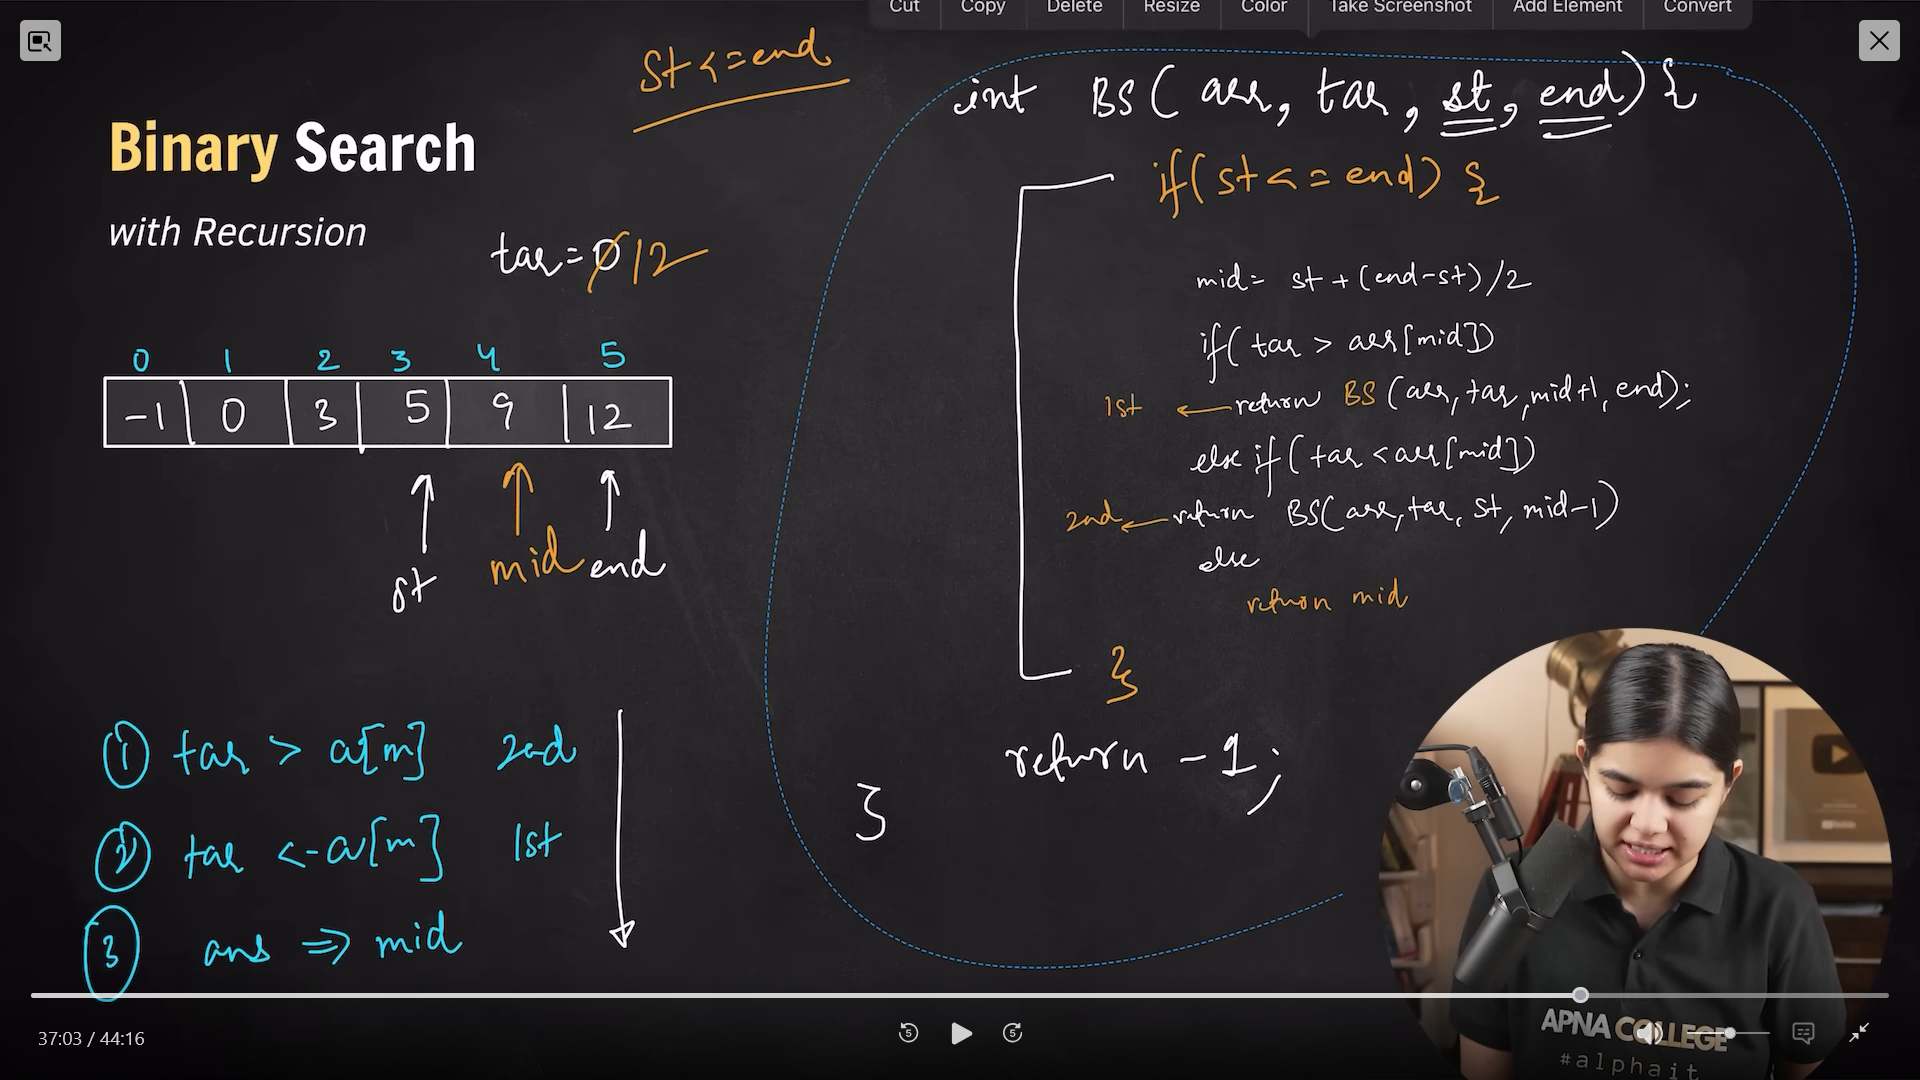 Cut Copy Delete Resize Color Take Screenshot Add Element Convert
st <= end
Binary Search
with Recursion
tar = 0 12
0 1 2 3 4 5
-1 0 3 5 9 12
st mid end
① tar > a[m] 2nd
② tar < a[m] 1st
③ ans ⇒ mid
int BS( arr, tar, st, end) {
if( st <= end) {
mid = st + (end-st) /2
if( tar > arr[mid])
1st ← return BS (arr, tar, mid+1, end);
else if( tar < arr[mid])
2nd ← return BS(arr, tar, st, mid-1)
else
return mid
}
return -1;
}
APNA COLLEGE
#alpha
37:03 / 44:16
5 5